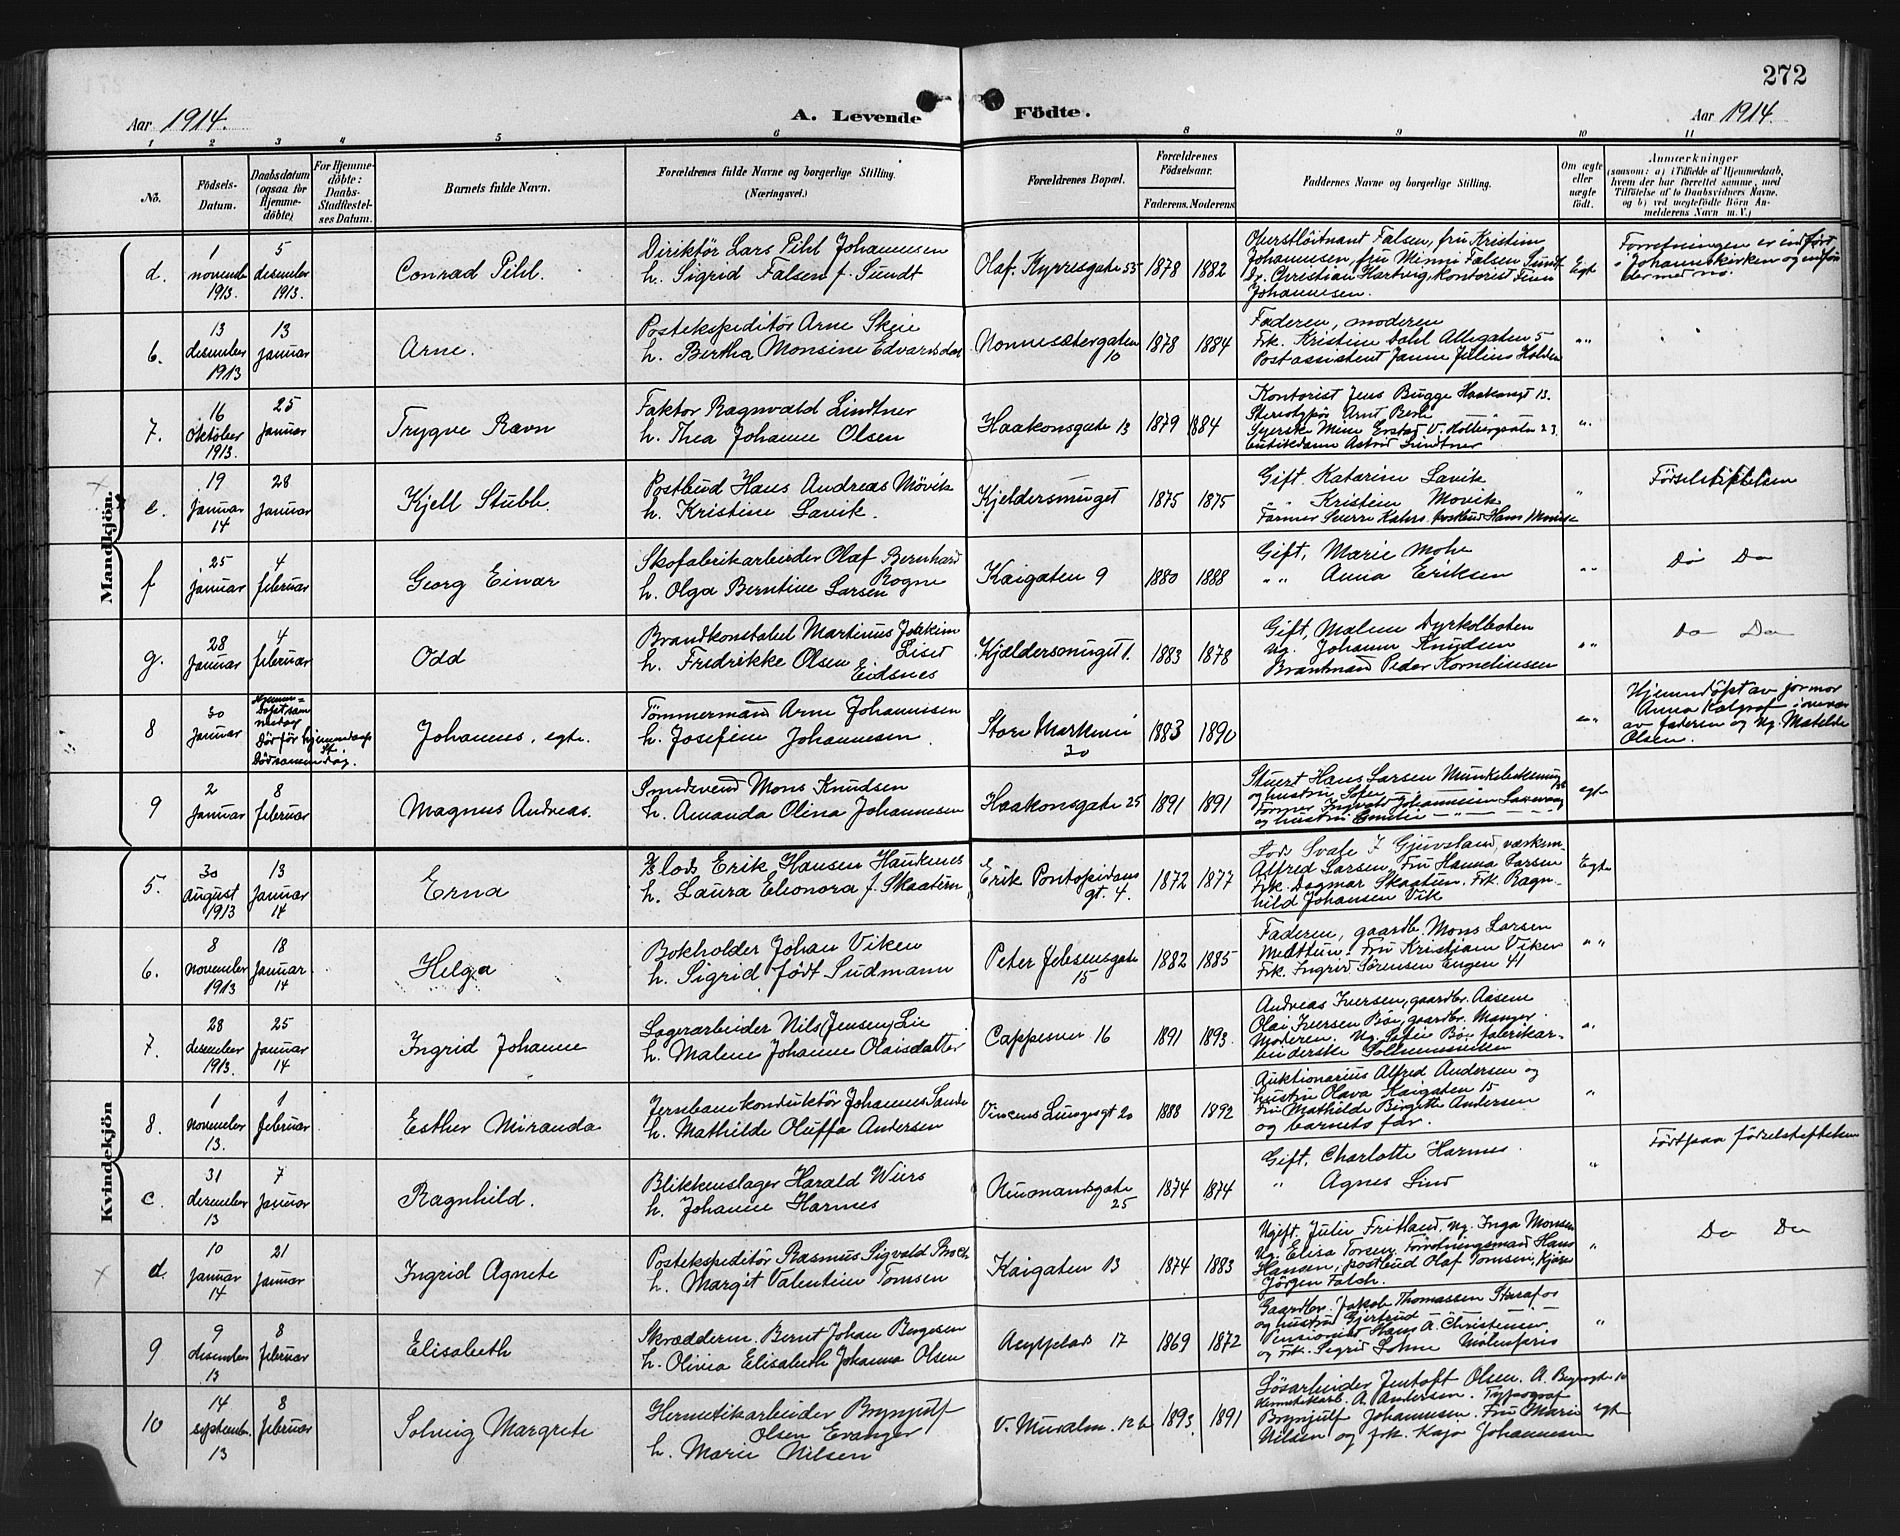 272
Aar 1914.
A. Levende Födte.
Aar 1914.
1 2 3 4 5 6 8 9 10 11
No.
Födsels-Datum.
Daabsdatum (ogsaa för Hjemme-döbte)
For Hjemme-döbte: Daabs-Stadfæstelses Datum.
Barnets fulde Navn.
Forældrenes fulde Navne og borgerlige Stilling. (Næringsvei.)
Forældrenes Bopæl.
Forældrenes Födselsaar.
Faderens. Moderens
Faddernes Navne og borgerlige Stilling.
Om ægte eller uægte födt.
Anmærkninger
(saasom: a) i Tilfælde af Hjemmedaab, hvem der har forrettet samme, med Tilföielse af to Daabsvidners Navne, og b) ved uægtefödte Börn Anmelderens Navn m. V.)
Mandkjön.
d. 1 novemb 1913. 5 desember 1913. Conrad Pihl.
Diriktör Lars Pihl Johannesen
h. Sigrid Falsen f. Sundt
Olaf Kyrresgate 55 1878 1882
Oberstlöitnant Falsen, fru Kristine
Johannesen, fru Minni Falsen Sundt
Dr. Christian Hartvig, kontorist Finn
Johannesen.
Egt
Forretningen er indfört
i Johanneskirken og
6. 13 desember 1913 13 Januar Arne.
Postekspeditör Arne Skeie
h. Bertha Monsine Edvardsdat
Nonnesætergaten 10 1878 1884
Faderen, moderen
Frk. Kristine Dahl Allegaten 5
Postassistent Janne Julius Holden
" "
7. 16 Oktober 1913. 25 Januar Trygve Ravn
Faktor Ragnvald Lindtner
h. Thea Johanne Olsen
Haakonsgate 13 1879 1884
Kontorist Jens Bugge Haakonsgt 13.
Stereotypör Arnt Berle
Syerske Mine Erstad V. 23
butikdame Astrid Lindtner
"
e. 19 Januar 14 28 Januar Kjell Stubb.
Postbud Hans Andreas Mövik
h. Kristine Lavik.
Kjeldersmuget 1875 1875
Gift. Katarine Lavik
" " Kristine Movik
Farmer Sverre postbud Hans
"
f 25 Januar 4 februar Georg Einar
Skofabrikarbeider Olaf Bernhard
h. Olga Berntine Larsen Rogne
Kaigaten 9 1880 1888
Gift, Marie Mohr
" " Anna Eriksen
" "
Do Do
g. 28 Januar 4 februar Odd
Brandkonstabel Martinus Joakim
h. Fredrikke Olsen Eidsnes
Kjældersmuget 1. 1883 1878
Gift, Malene Dyrkolbotn
Ug. Johanne Knudsen
Brantmand Peder Kornelinssen
" "
Do Do
8 30 Januar Johannes, egte.
Tömmermand Arne Johannesen
h. Josefine Johannesen.
Store Markevei 30 1883 1890
Hjemmedöpt av jormor
Anna
av faderen og Ug. Matilde
Olsen.
9 2 Januar 8 februar Magnus Andreas.
Smedsvend Mons Knudsen
h. Amanda Olina Johannesen
Haakonsgate 25 1891 1891
Stuert Hans Larsen
og hustru Sofie
Former Ingvald Johannesen
og hustru
egte
Kvindekjön
5. 30 August 1913 13 Januar 14 Erna
Lods Erik Hansen Haukenes
h. Laura Eleonora f. Skaatun
Erik Pontopidans gt. 4. 1872 1877
Lods Svale Gjuvsland, værksm.
Alfred Larsen, Fru Hanna Larsen
Frk. Dagmar Skaatun. Frk. Ragn-
hild Johansen Vik
Egte
6. 8 november 1913 18 Januar 14 Helga
Bokholder Johan Viken
h. Sigrid född Sudmann
Peter Jebsensgate 15 1882 1885
Faderen, gaardbr. Mons Larsen
Midttun. Fru Kristiane Viken
Frk. Ingrid Sörensen Engen 41
" "
7. 28 desember 1913. 25 Januar 14 Ingrid Johanne
Lagerarbeider Nils (Jensen) Lie
h. Malene Johanne Olaisdatter
Cappesvei 16 1891 1893.
Andreas Iversen, gaardbr. Aasene
Olai Iversen Böe, gaardbr. Manger.
Moderen. Ug. Sofie Böe fabrikar-
beiderske
"
8. 1 november 13. 1 februar Esther Miranda
Jernbanekonduktör Johannes Sande
h. Mathilde Oluffa Andersen
Vincens Lungesgt 20 1888 1892
Auktionarius Alfred Andersen og
hustru Olava Kaigaten 15
Fru Mathilde Birgitte Andersen
og barnets far.
"
c. 31 desember 13 7 Januar Ragnhild.
Blikkenslager Harald Wiers
h. Johanne Harmes
Neumannsgate 25 1874 1874
Gift, Charlotte Harmes.
" Agnes Lind
"
Födt paa födselstiftelsen
d. 10 Januar 14 21 Januar Ingrid Agnete
Postekspeditör Rasmus Sigvald Broch
h. Margit Valentine Tomsen
Kaigaten 13 1874 1883
Ugift. Julie Fritland, Ug. Inga Monsen
Ug. Elisa Torsen, Forretningsmand Hans
Hansen, postbud Olaf Tomsen,
Jörgen Falch.
"
Do Do
9 9 desember 13 8 februar Elisabeth
Skrædderm. Bernt Johan Bergesen
h. Olivia Elisabeth Johanna Olsen
17 1869 1872
Gaardbr. Jakob Thomassen
og hustru Gjertrud
Pensionist Hans A. Christensen
og Frk. Sigrid
"
10 14 septemb. 13 8 februar Solveig Margrete
Hermetikarbeider Brynjulf
Olsen Evanger
h. Marie Nilsen
V. Muralm. 12 b 1893. 1891
Lösarbeider Jentoft Olsen.
Hermetikarb. A. Andersen. Typograf
Brynjulf Johannesen. Fru Marie
Nilsen og frk. Kaja Johannesen
egte